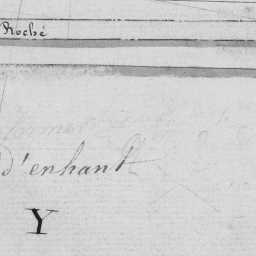 Roché
d'enhant
Y